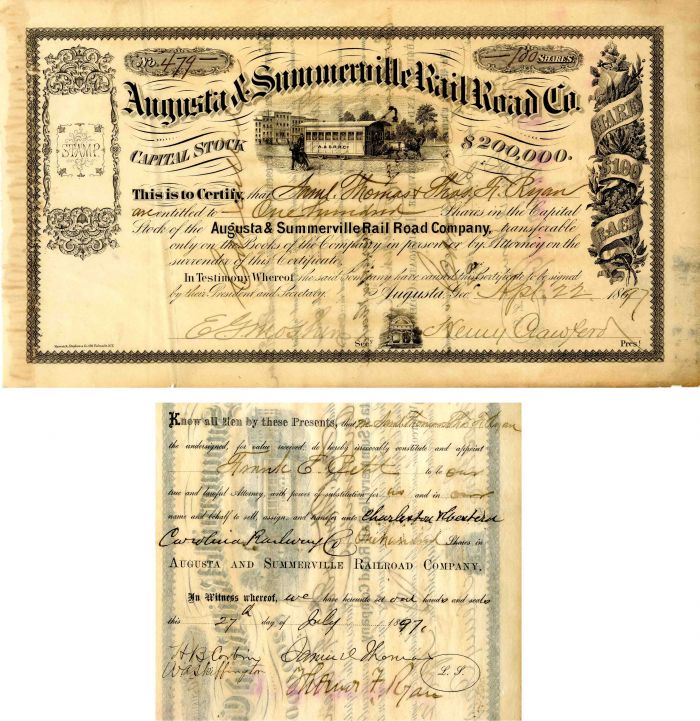 No. 479
100 SHARES
Augusta & Summerville Rail Road Co.
STAMP
A & S R R Co
CAPITAL STOCK $200,000.
SHARES $100 EACH
This is to Certify, that Saml. Thomas & Thos. F. Ryan
are entitled to One Hundred Shares in the Capital
Stock of the Augusta & Summerville Rail Road Company, transferable
only on the Books of the Company in person or by Attorney on the
surrender of this Certificate.
In Testimony Whereof the said Company have caused this Certificate to be signed
by their President and Secretary. Augusta, Geo. Apl. 22 1897
Secy. Henry Crawford Prest.
Know all Men by these Presents, that we Saml. Thomas & Thos. F. Ryan
the undersigned, for value received, do hereby irrevocably constitute and appoint
Frank E. to be our
true and lawful Attorney, with power of substitution for us and in our
name and behalf to sell, assign, and transfer unto Charleston & Western
Carolina Railway Co One hundred Shares in
AUGUSTA AND SUMMERVILLE RAILROAD COMPANY.
In Witness whereof, we have hereunto set our hands and seals
this 27th day of July 1897.
Samuel Thomas
Thomas F. Ryan
L. S.